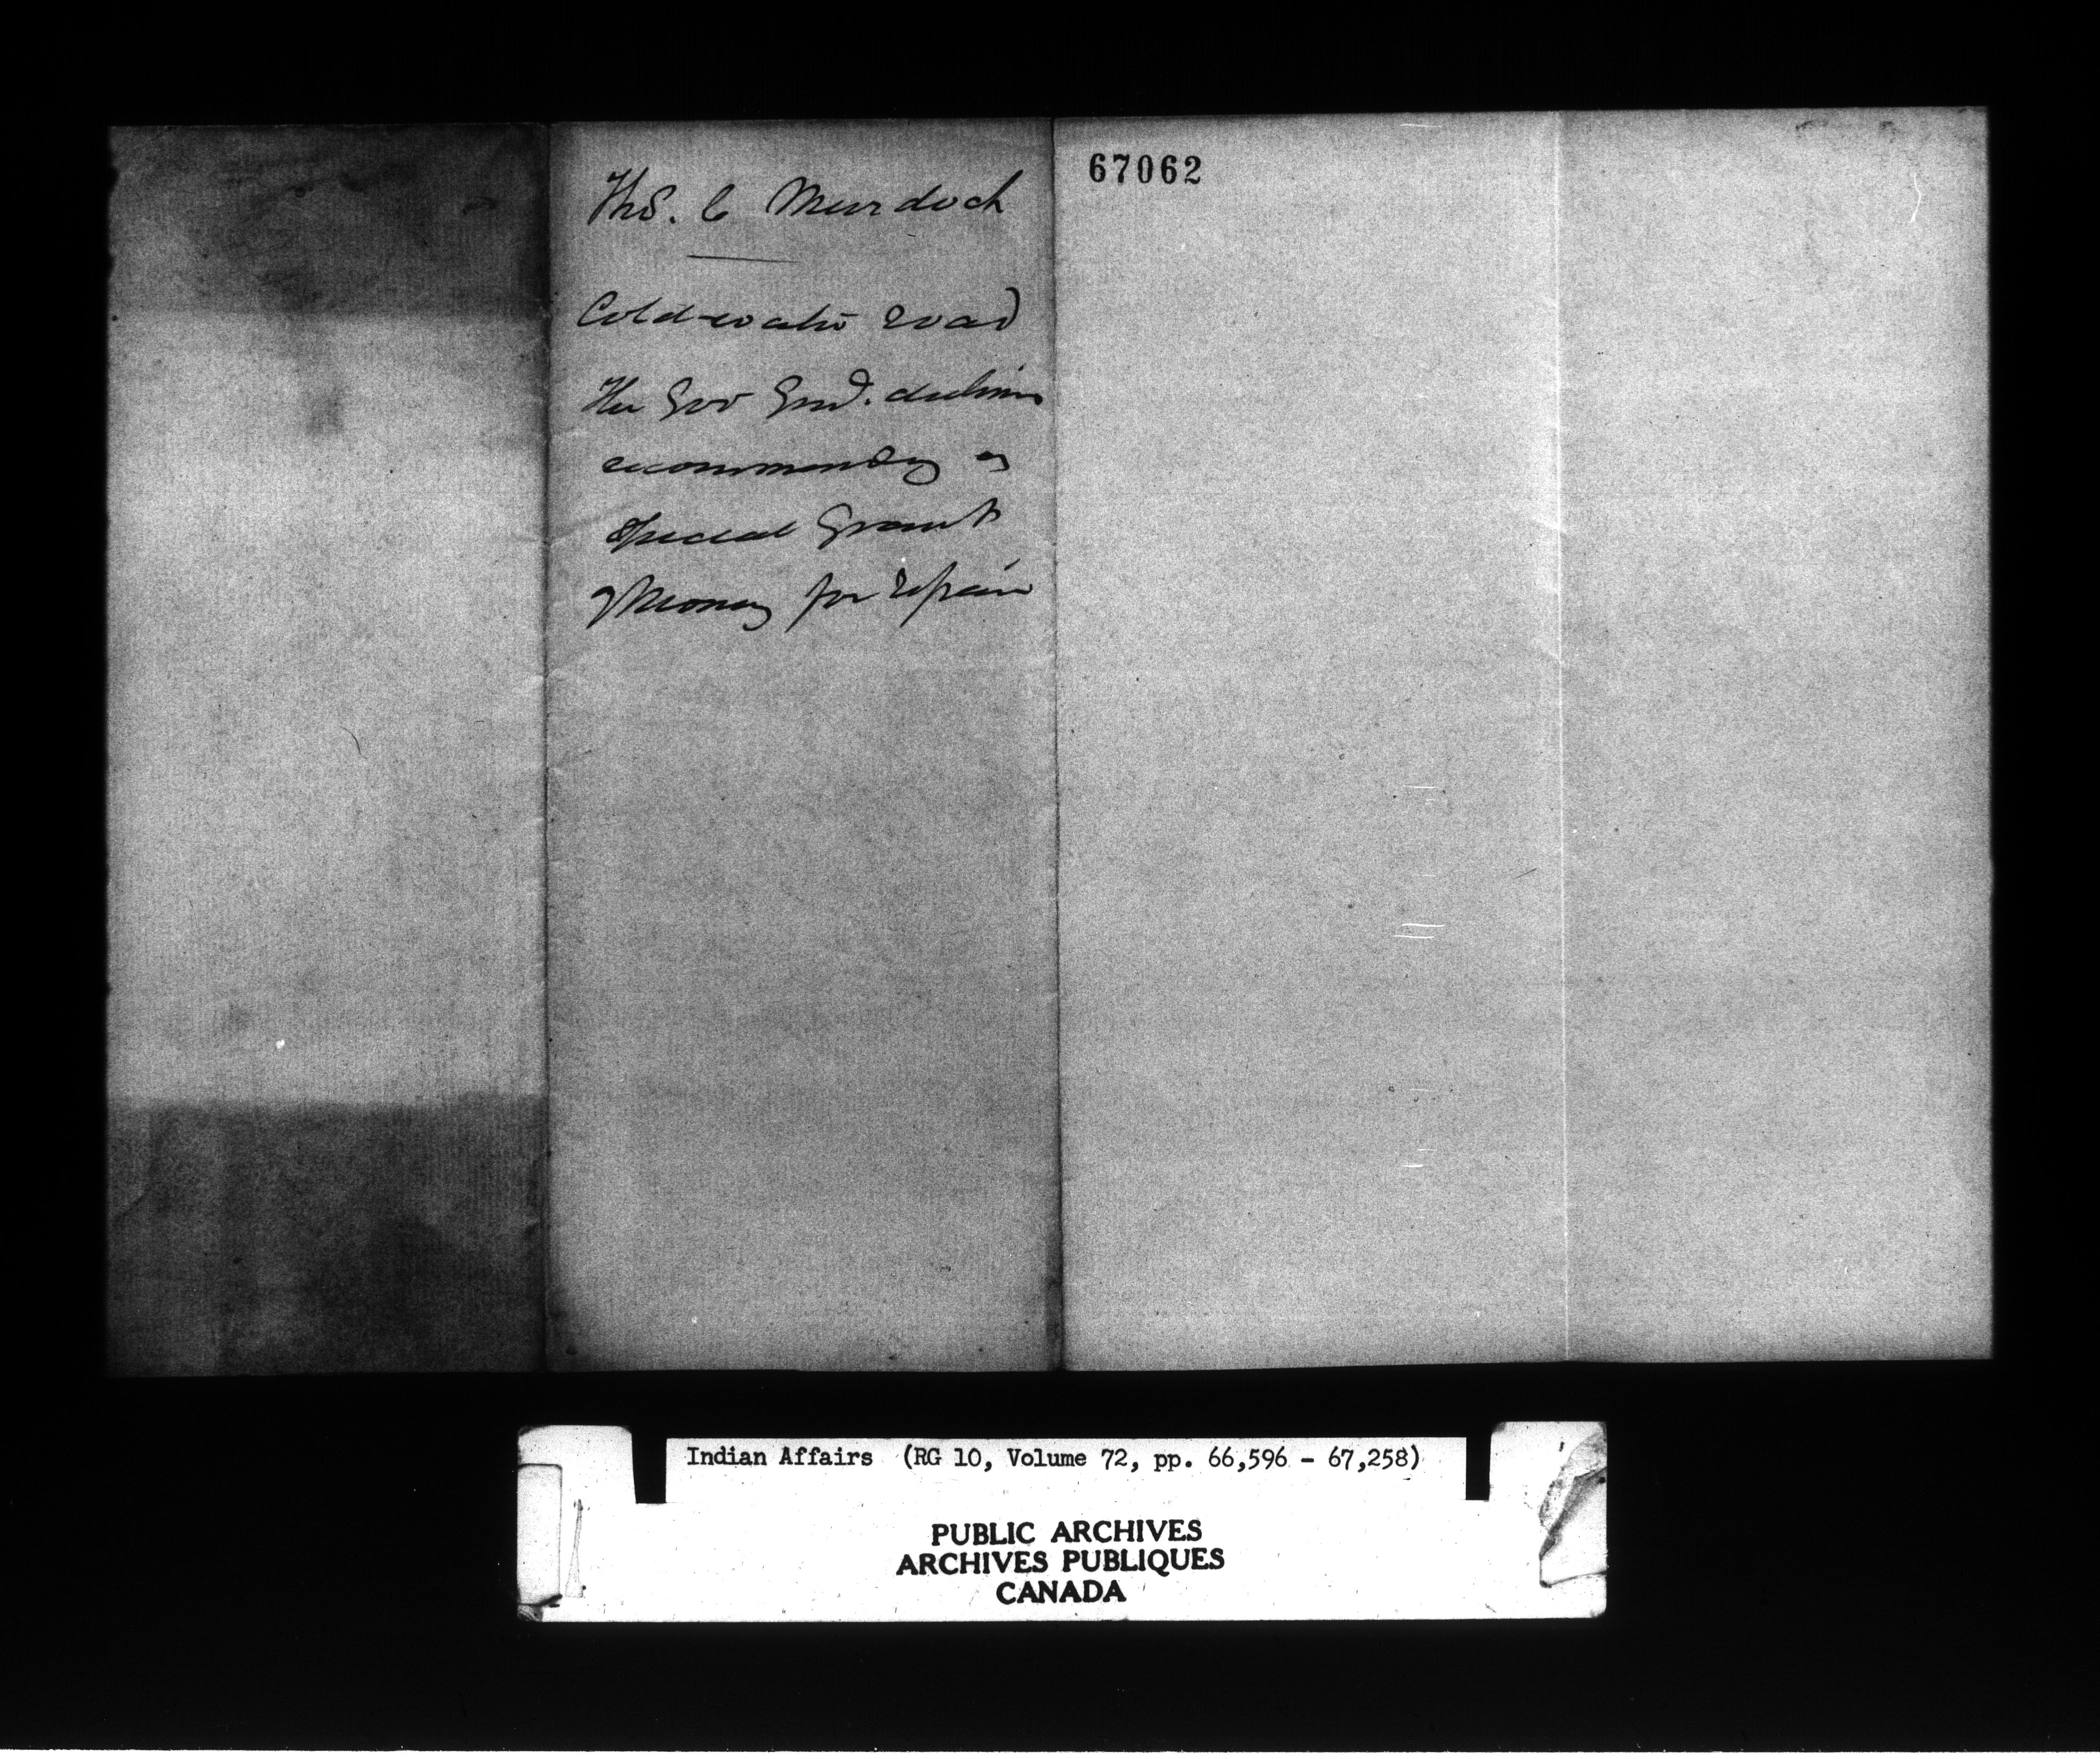 Thos. C Murdoch
Coldwater road
The Gov Genl. declines
recommending a
special Grant
of Money for repair
67062
Indian Affairs (RG 10, Volume 72, pp. 66,596 - 67,258)
PUBLIC ARCHIVES
ARCHIVES PUBLIQUES
CANADA